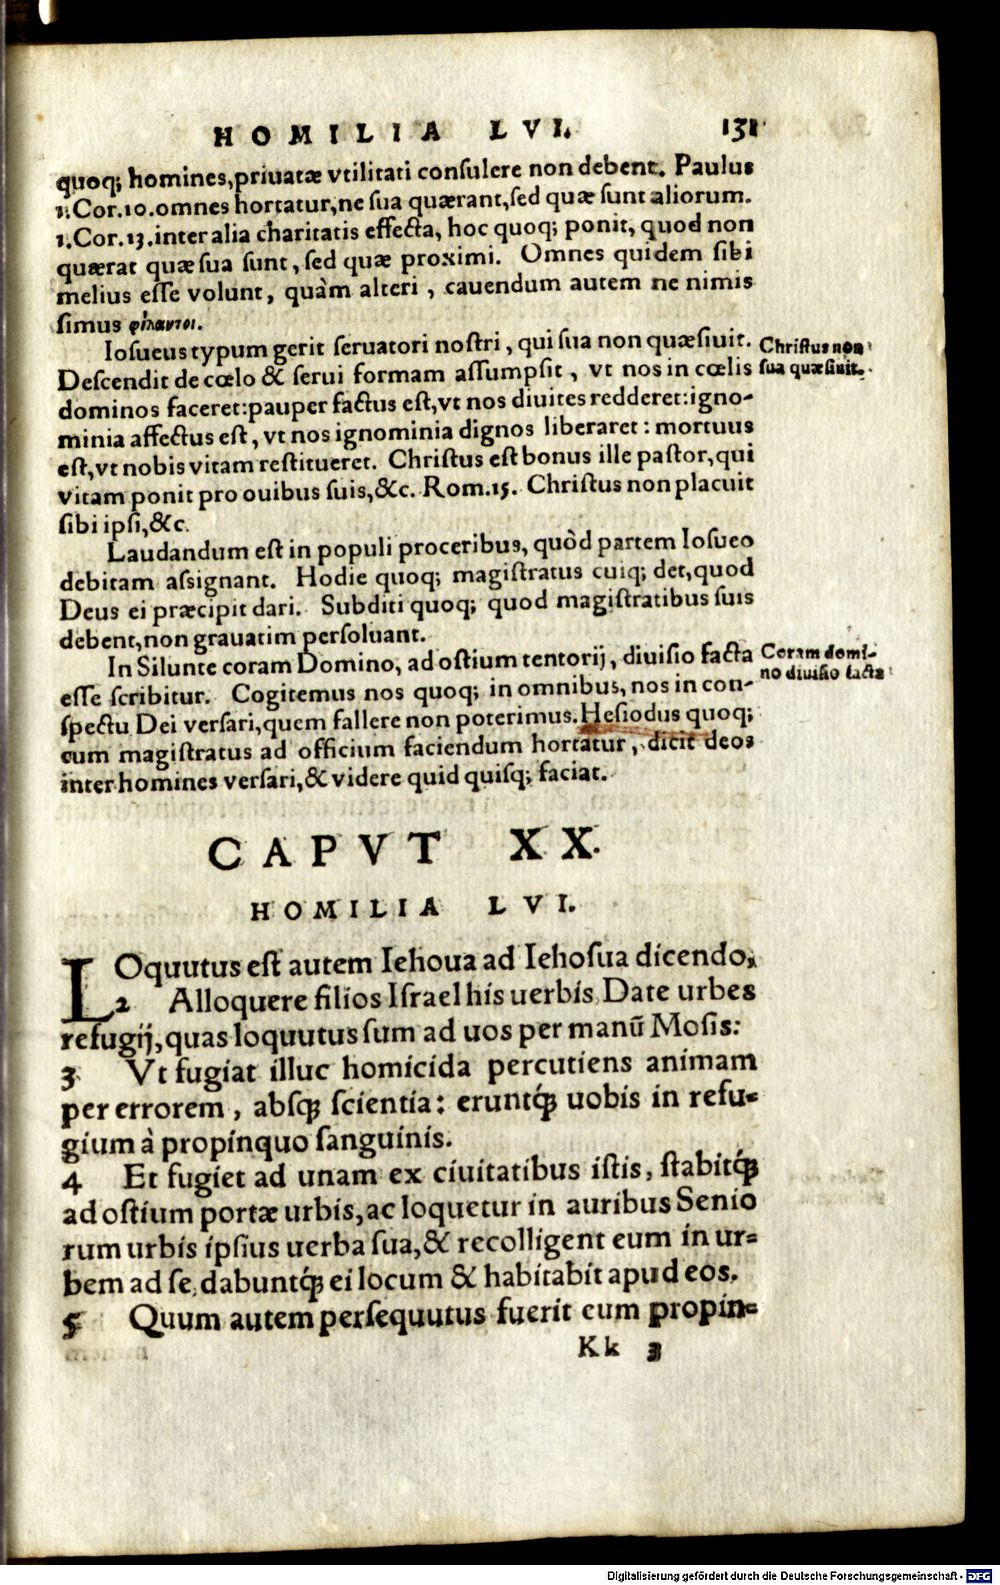 HOMILIA LVI. 131
quoq; homines, priuatæ vtilitati consulere non debent. Paulus
1. Cor. 10. omnes hortatur, ne sua quærant, sed quæ sunt aliorum.
1. Cor. 13. inter alia charitatis effecta, hoc quoq; ponit, quod non
quærat quæ sua sunt, sed quæ proximi. Omnes quidem sibi
melius esse volunt, quàm alteri, cauendum autem ne nimis
simus φίλαυτοι.
Iosueus typum gerit seruatori nostri, qui sua non quæsiuit.
Christus non
sua quæsiuit.
Descendit de cœlo & serui formam assumpsit, vt nos in cœlis
dominos faceret: pauper factus est, vt nos diuites redderet: igno-
minia affectus est, vt nos ignominia dignos liberaret: mortuus
est, vt nobis vitam restitueret. Christus est bonus ille pastor, qui
vitam ponit pro ouibus suis, &c. Rom. 15. Christus non placuit
sibi ipsi, &c.
Laudandum est in populi proceribus, quòd partem Iosueo
debitam assignant. Hodie quoq; magistratus cuiq; det, quod
Deus ei præcipit dari. Subditi quoq; quod magistratibus suis
debent, non grauatim persoluant.
In Silunte coram Domino, ad ostium tentorij, diuisio facta
Coram domi-
no diuisio facta
esse scribitur. Cogitemus nos quoq; in omnibus, nos in con-
spectu Dei versari, quem fallere non poterimus. Hesiodus quoq;
cum magistratus ad officium faciendum hortatur, dicit deos
inter homines versari, & videre quid quisq; faciat.
CAPVT XX.
HOMILIA LVI.
LOquutus est autem Iehoua ad Iehosua dicendo,
2 Alloquere filios Israel his uerbis, Date urbes
refugij, quas loquutus sum ad uos per manū Mosis:
3 Vt fugiat illuc homicida percutiens animam
per errorem, absq; scientia: eruntq́; uobis in refu-
gium à propinquo sanguinis.
4 Et fugiet ad unam ex ciuitatibus istis, stabitq́;
ad ostium portæ urbis, ac loquetur in auribus Senio
rum urbis ipsius uerba sua, & recolligent eum in ur-
bem ad se, dabuntq́; ei locum & habitabit apud eos.
5 Quum autem persequutus fuerit eum propin-
Kk 3
Digitalisierung gefördert durch die Deutsche Forschungsgemeinschaft - DFG